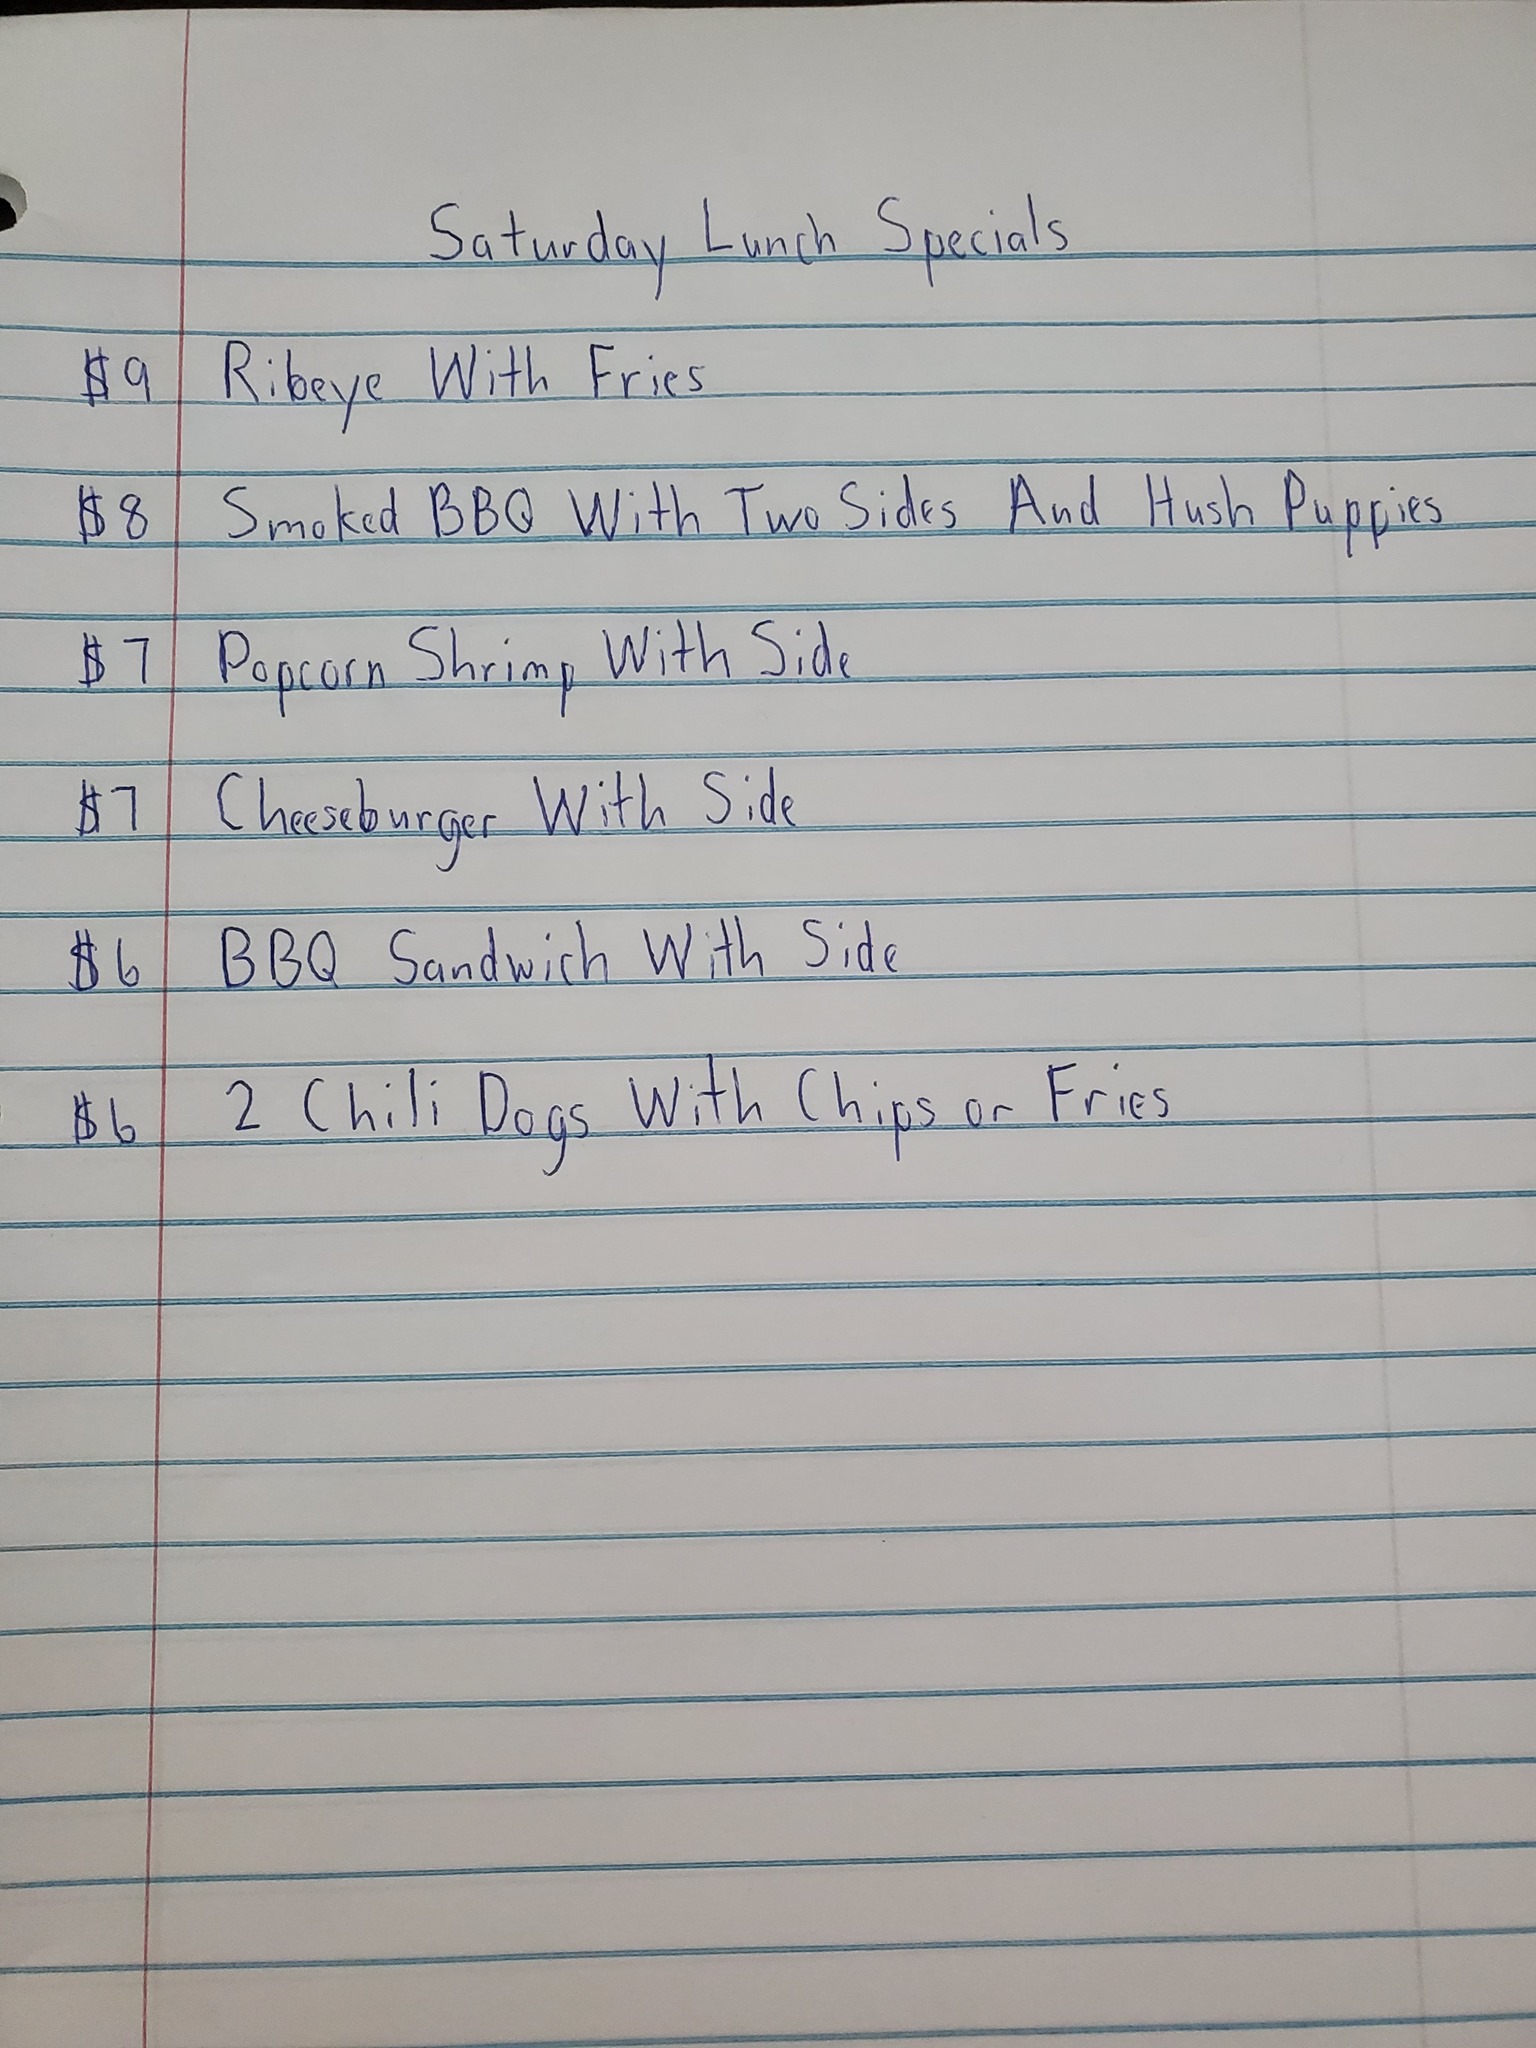 Saturday Lunch Specials
$9 Ribeye With Fries
$8 Smoked BBQ With Two Sides And Hush Puppies
$7 Popcorn Shrimp With Side
$7 Cheeseburger With Side
$6 BBQ Sandwich With Side
$6 2 Chili Dogs With Chips or Fries